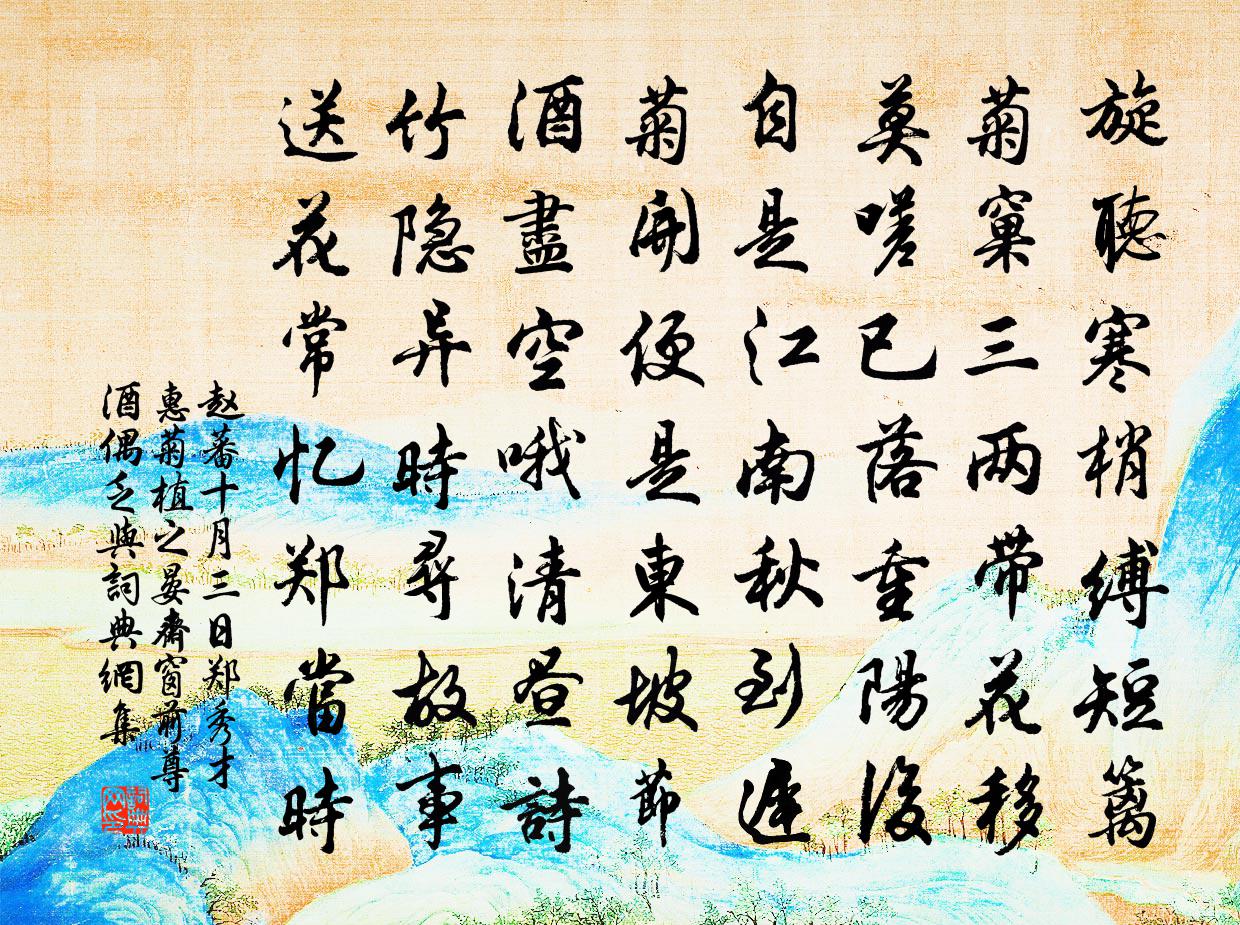 旋聽寒梢縛短籬
菊窠三两带花移
莫嗟已落重陽後
自是江南秋到遲
菊開便是東坡節
酒盡空哦清昼詩
竹隐异時尋故事
送花常忆郑當時
赵蕃十月三日郑秀才
惠菊植之晏齋窗前尊
酒偶乏與詞典網集